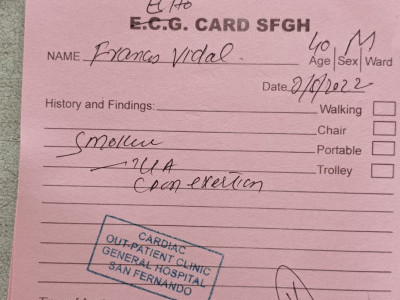 ECHO
E.C.G. CARD SFGH
NAME Francis Vidal. 40 M
Age Sex Ward
Date 2/5/2022
History and Findings: Walking
Chair
Smoker Portable
Trolley
on exertion
CARDIAC
OUT-PATIENT CLINIC
GENERAL HOSPITAL
SAN FERNANDO